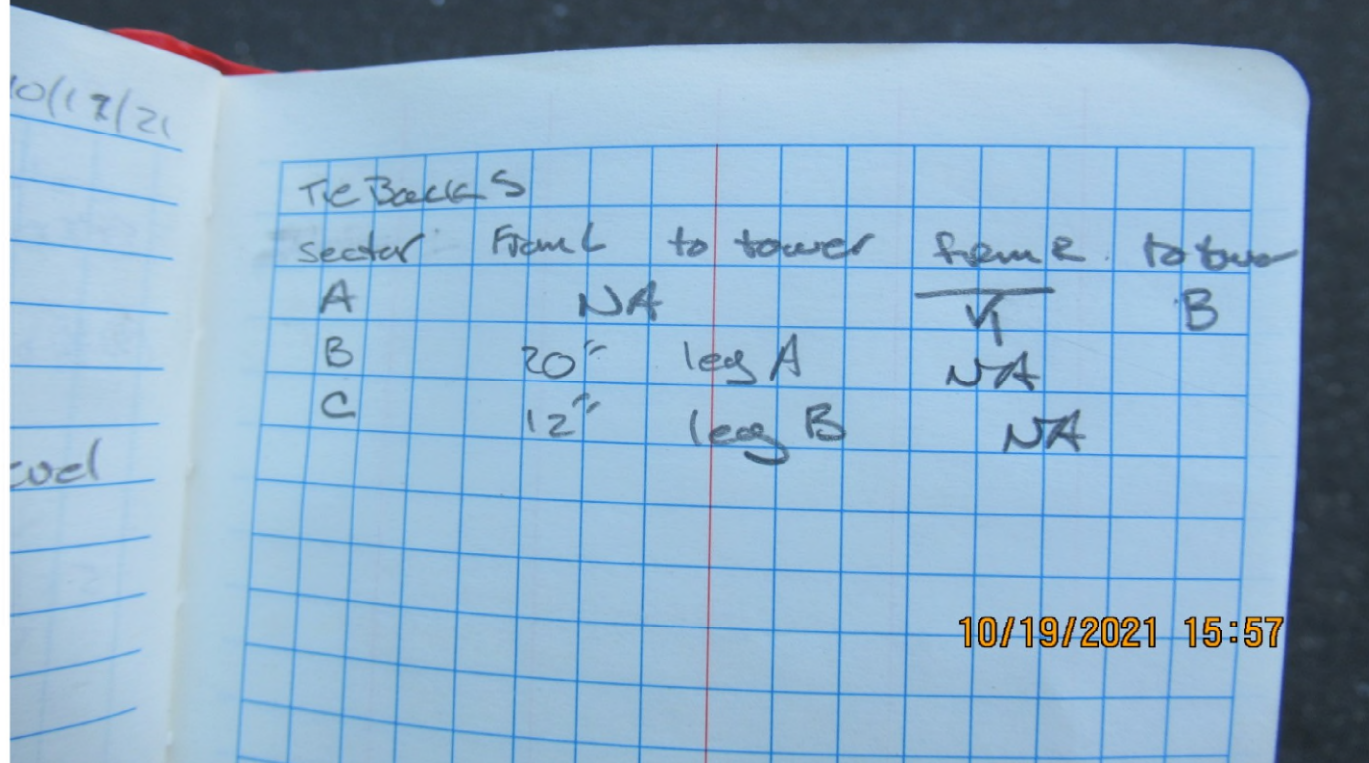 Tie Backs
sector From L to tower from R to tower
A NA B
B 20" leg A NA
C 12" leg B NA
10/19/2021 15:57